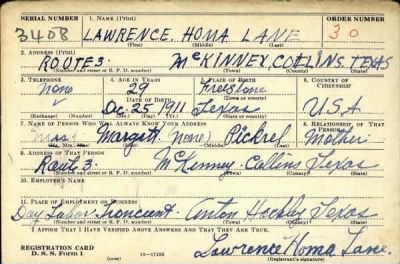 SERIAL NUMBER 1. NAME (Print) ORDER NUMBER
3408 LAWRENCE, HOMA LANE 30
(First) (Middle) (Last)
2. ADDRESS (Print)
ROUTE 3 McKINNEY, COLLINS, TEXAS
(Number and street or R. F. D. number) (Town) (County) (State)
3. TELEPHONE 4. AGE IN YEARS 5. PLACE OF BIRTH 6. COUNTRY OF CITIZENSHIP
none 29 Freestone
DATE OF BIRTH (Town or county)
Dec 25 1911 Texas U S A
(Exchange) (Number) (Mo.) (Day) (Yr.) (State or country)
7. NAME OF PERSON WHO WILL ALWAYS KNOW YOUR ADDRESS 8. RELATIONSHIP OF THAT PERSON
Mrs. Margett (none) Pickrel Mother
(Mr., Mrs., Miss) (First) (Middle) (Last)
9. ADDRESS OF THAT PERSON
Rout 3. McKenney Collins Texas
(Number and street or R. F. D. number) (Town) (County) (State)
10. EMPLOYER'S NAME
11. PLACE OF EMPLOYMENT OR BUSINESS
Day Labor Anton Hockley Texas
(Number and street or R. F. D. number) (Town) (County) (State)
I AFFIRM THAT I HAVE VERIFIED ABOVE ANSWERS AND THAT THEY ARE TRUE.
REGISTRATION CARD
D. S. S. Form 1 16—17105 Lawrence Homa Lane.
(Registrant's signature)